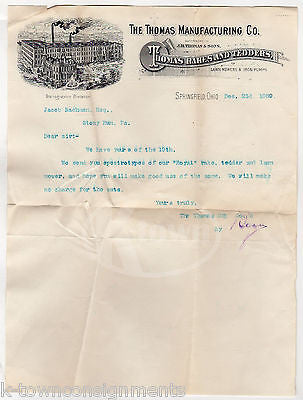 THE THOMAS MANUFACTURING CO.
J.H. THOMAS & SONS.
THOMAS RAKES AND TEDDERS,
LAWN MOWERS & IRON PUMPS
SPRINGFIELD, OHIO Dec. 21st 1889.
Jacob Bachman, Esq.,
Stony Run, Pa.
Dear sir:-
We have yours of the 19th.
We send you electrotypes of our "Royal" rake, tedder and lawn
mower, and hope you will make good use of the same. We will make
no charge for the cuts.
Yours truly,
The Thomas Mfg Comp'y
By
k-townconsignments